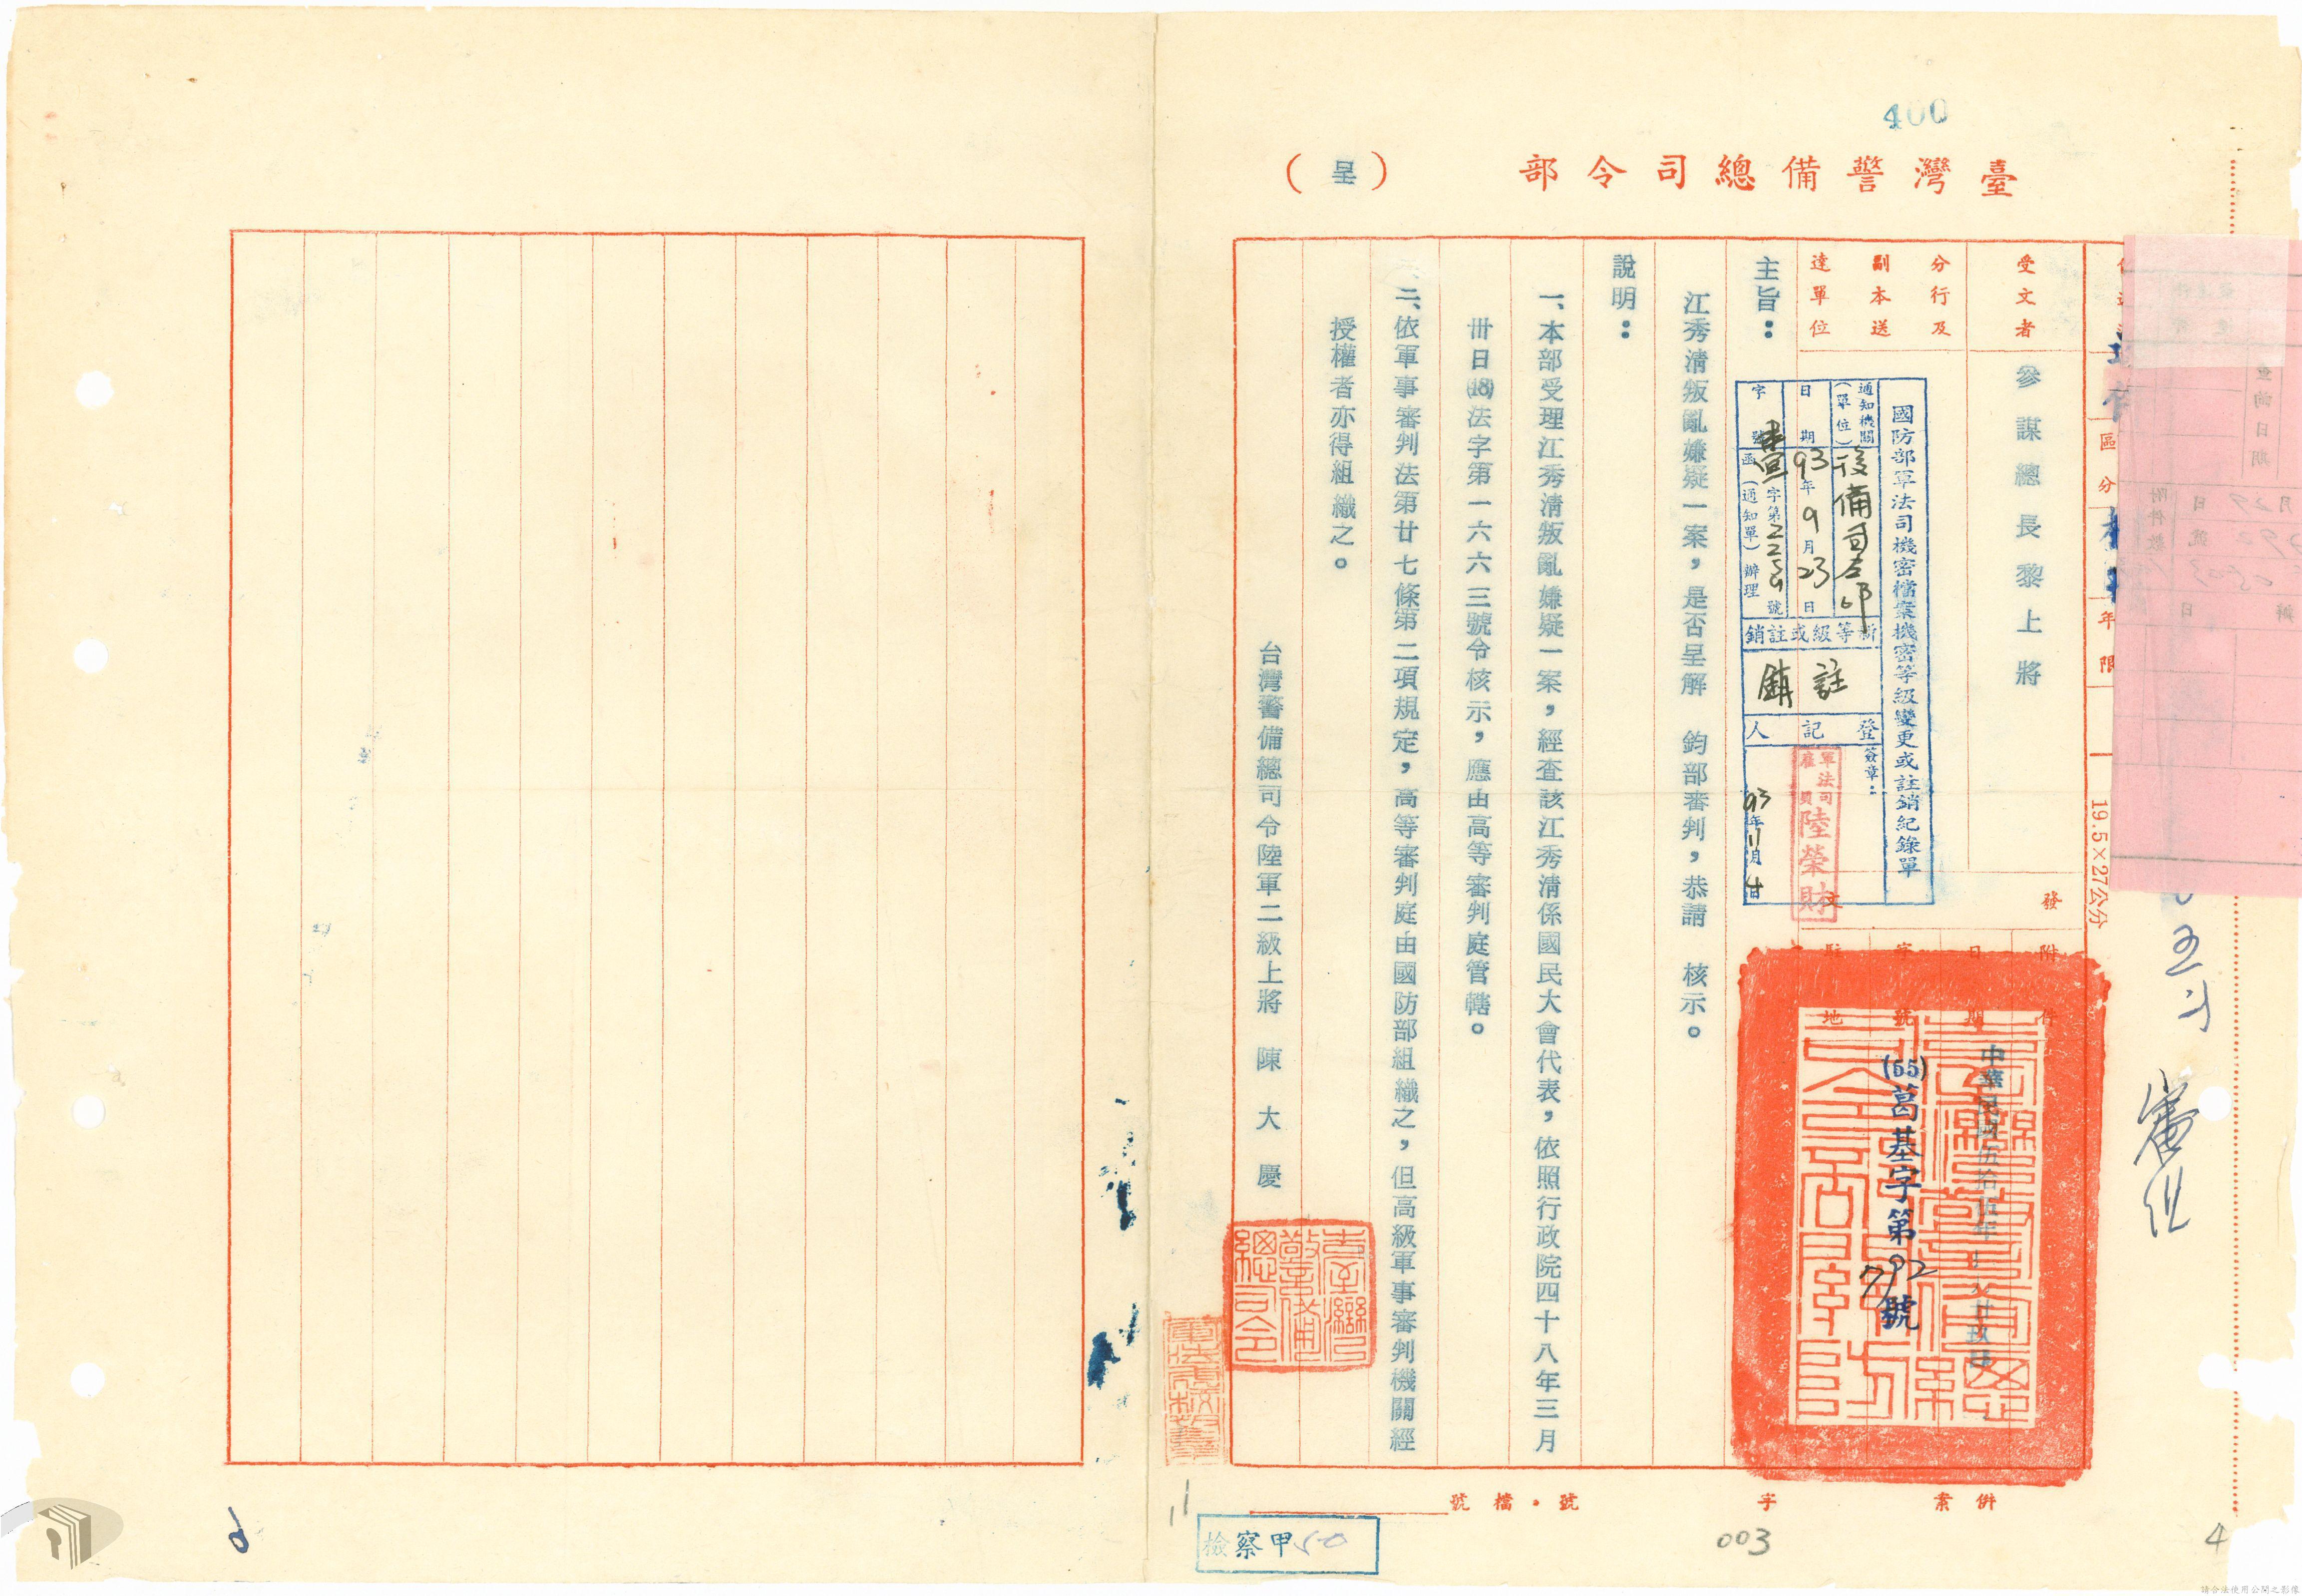 400
臺灣警備總司令部（呈）
受文者
參謀總長黎上將
分行及
副本送
達單位
區分
年限
19.5×27公分
發文
附件
日期
字號
駐地
中華民國伍拾伍年
廿玖日
(55)葛基字第792號
國防部軍法司機密檔案機密等級變更或註銷紀錄單
通知機關
（單位）
後備司令部
日期
93年9月23日
字號
字第2259號
函（通知單）辦理
新等級或註銷
註銷
登記人
簽章：
軍法司
雇員
陸榮財
93年11月4日
主旨：
江秀清叛亂嫌疑一案，是否呈解　鈞部審判，恭請　核示。
說明：
一、本部受理江秀清叛亂嫌疑一案，經查該江秀清係國民大會代表，依照行政院四十八年三月
卅日(48)法字第一六六三號令核示，應由高等審判庭管轄。
二、依軍事審判法第廿七條第二項規定，高等審判庭由國防部組織之，但高級軍事審判機關經
授權者亦得組織之。
台灣警備總司令陸軍二級上將　陳大慶
臺灣警備總司令
併案
字
號
檔號
檢察甲50
003
4
6
11
請合法使用公開之影像